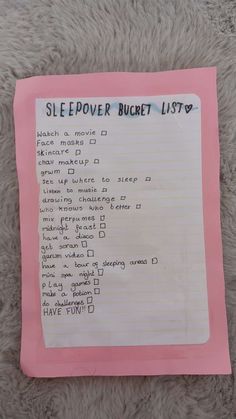 SLEEPOVER BUCKET LIST
Watch a movie
Face masks
skincare
chav makeup
grwm
set up where to sleep
Listen to music
drawing challenge
who knows who better
mix perfumes
midnight feast
have a disco
get
video
have a tour of sleeping areas
mini spa night
play games
make a potion
do challenges
HAVE FUN!!